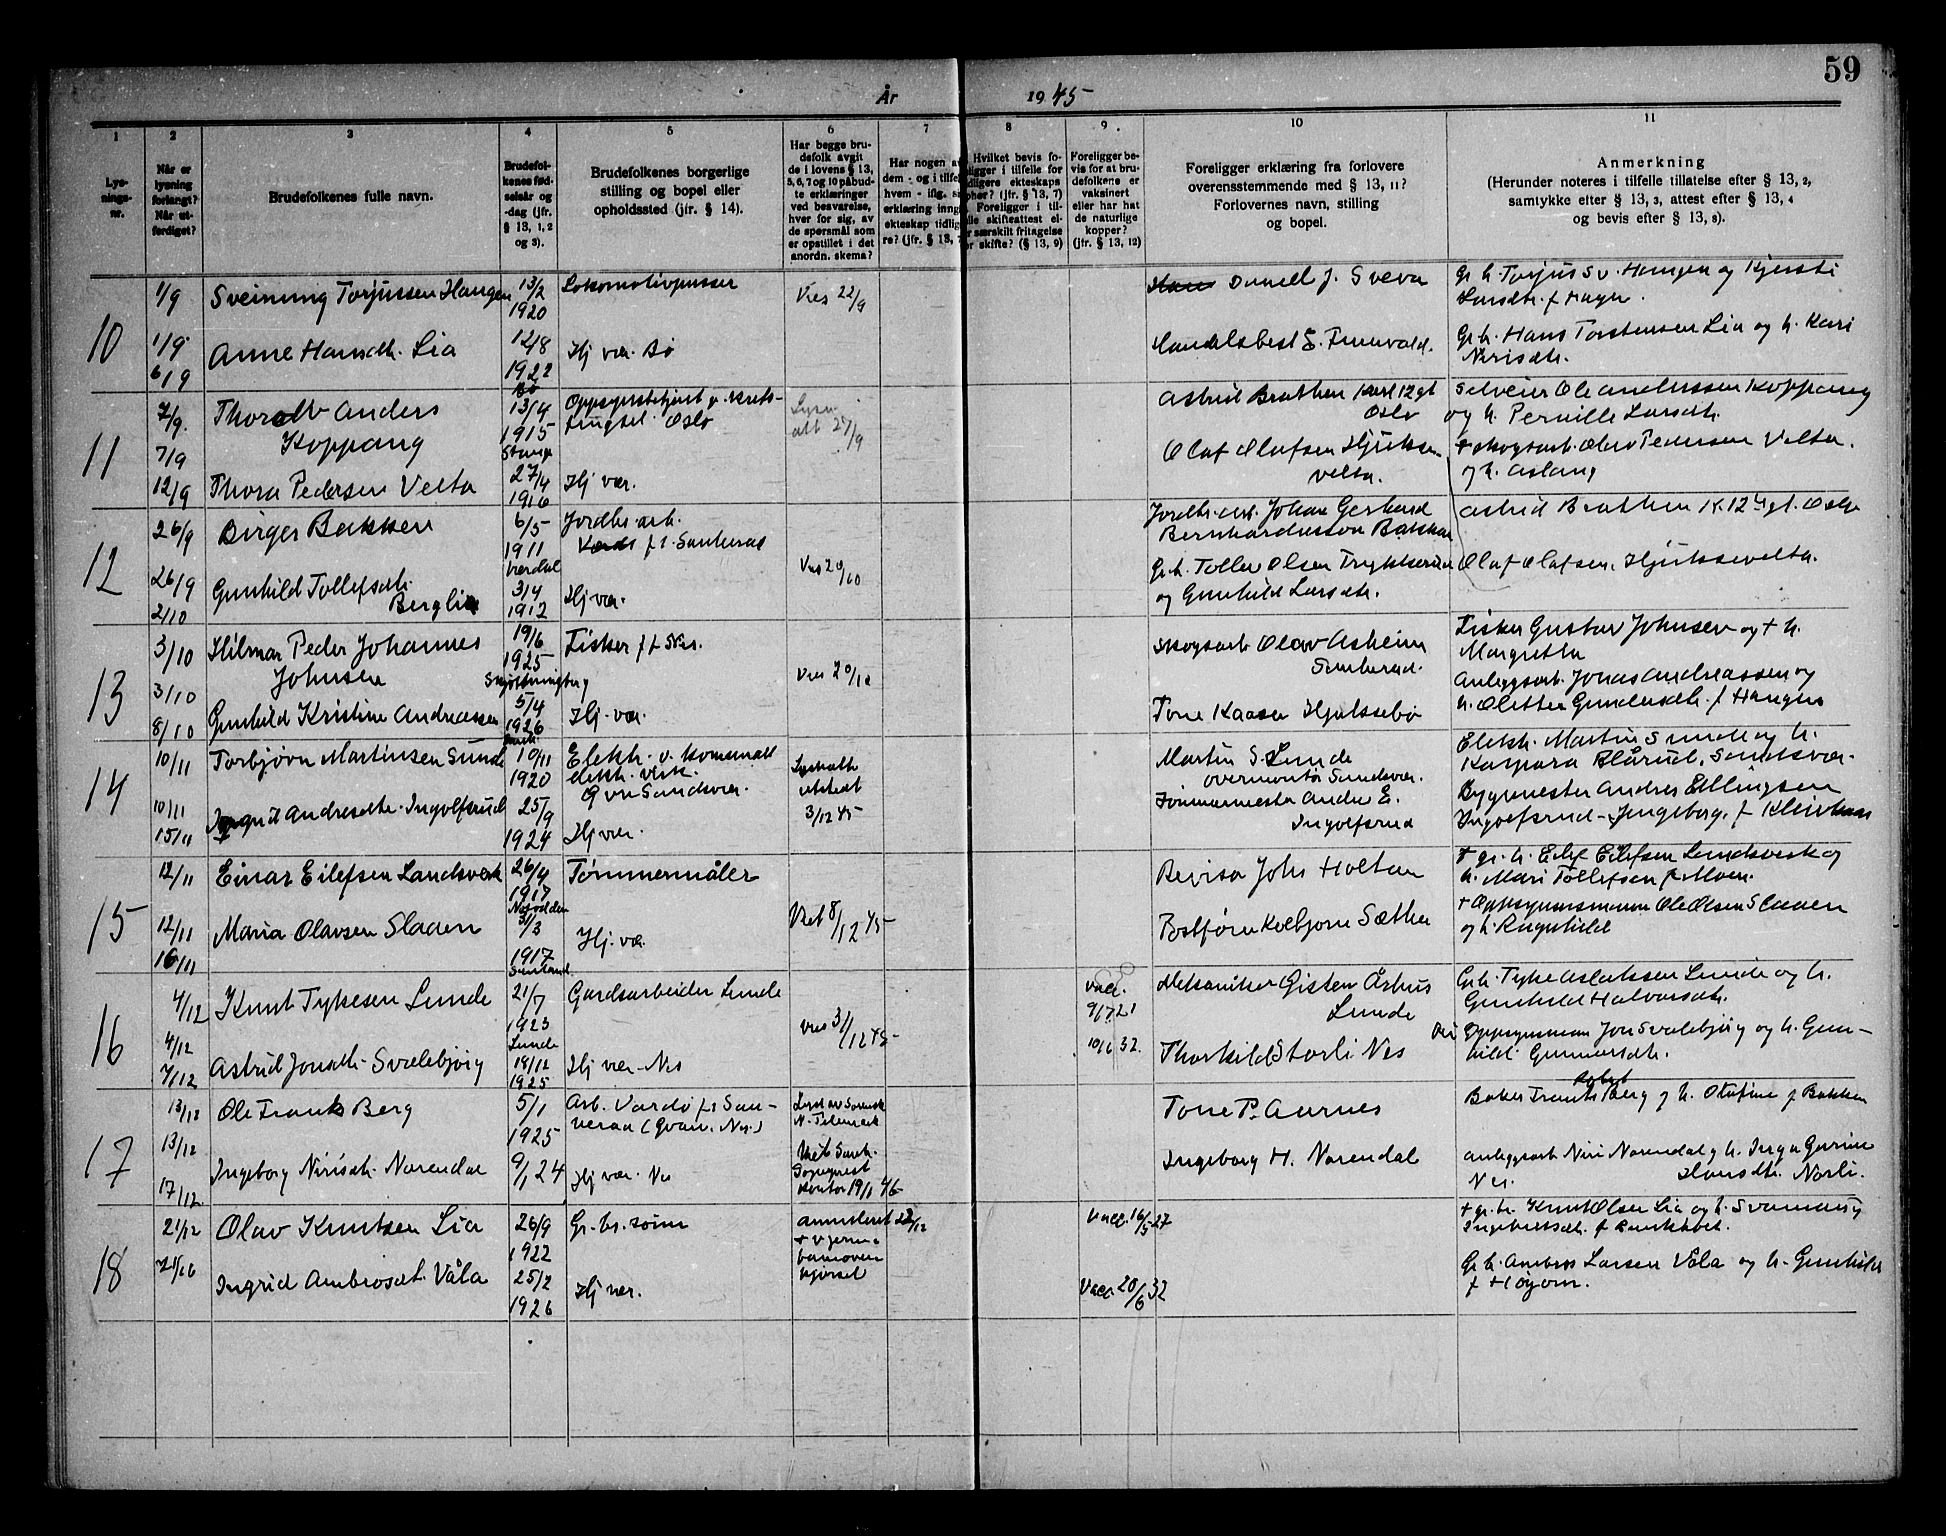 59
År 1945
1 2 3 4 5 6 7 8 9 10 11
Lys-
nings-
nr.
Når er
lysning
forlangt?
Når ut-
ferdiget?
Brudefolkenes fulle navn.
Brudefol-
kenes fød-
selsår og
-dag (jfr.
§ 13, 1, 2
og 3).
Brudefolkenes borgerlige
stilling og bopel eller
opholdssted (jfr. § 14).
Har begge bru-
defolk avgit
de i lovens § 13,
5, 6, 7 og 10 påbud-
te erklæringer
ved besvarelse,
hver for sig, av
de spørsmål som
er opstillet i det
anordn. skema?
Har nogen av
dem - og i tilfelle
hvem - iflg. sin
erklæring inngått
ekteskap tidlige-
re? (jfr. § 13, 7)
Hvilket bevis fo-
religger i tilfelle for
tidligere ekteskaps
opher? (jfr. § 13, 7)
Foreligger i til-
felle skifteattest el-
ler særskilt fritagelse
for skifte? (§ 13, 9)
Foreligger be-
vis for at bru-
defolkene er
vaksinert
eller har hat
de naturlige
kopper?
(jfr. § 13, 12)
Foreligger erklæring fra forlovere
overensstemmende med § 13, 11?
Forlovernes navn, stilling
og bopel.
Anmerkning
(Herunder noteres i tilfelle tillatelse efter § 13, 2,
samtykke efter § 13, 3, attest efter § 13, 4
og bevis efter § 13, 8).
10
1/9 Sveinung Torjussen Haugen 13/2 1920 Lokomotivpusser Vies 22/9
J. Sveva
Gr. h. Torjus Sv. Haugen og Kjersti
Larsdtr. f. Hagen.
1/9 6/9 Anne Hansdtr. Lia 12/8 1922 Hj. vær. Bø
Handelsbest E.
Gr. h. Hans Torstensen Lia og h. Kari
Nirisdtr.
11
7/9 Thorolv Anders
Koppang
13/4 1915 Stange
Oppsynsbetjent v. Krets-
fengsel. Oslo
27/9
Astrid Brathen Karl 12 gt
Oslo
Ole Andersson Koppang
og h. Pernille Larsdtr.
7/9 12/9 Thora Pedersen Velta 27/4 1916 Hj. vær.
Olaf Olafsen Hjuksevelta.
+ skogsarb. Olav Pedersen Velta.
og h. Aslaug
12
26/9 Birger Bakken 6/5 1911 Verdal
Jordbr. arb.
f. t. Sauherad
Vies 20/10
Jordbr. arb. Johan Gerhard
Bernhardussøn Bakken
Astrid Brathen K. 12 gt. Oslo
26/9 2/10 Gunhild Tollefsdtr.
Berglie
3/4 1912 Hj. vær.
Gr. h. Tollev Olsen
og Gunhild Larsdtr.
Olaf Olafsen, Hjuksevelta.
13
3/10 Hilmar Peder Johannes
Johnsen
19/6 1925
Fisker f. t. Nes.
Vies 20/10
Skogsarb Olav Asheim
Sauherad.
Fisker Gustav Johnsen og + h.
Margretha
3/10 8/10 Gunhild Kristine Andreassen 5/4 1926 Hj. vær.
Tone Kaasa Hjuksebø
Anleggsarb. Jonas Andreassen og
h. Olette Gundersdtr. f. Haugen
14
10/11 Torbjørn Martinsen Sunde 10/11 1920
Elektr. v. kommunalt
elektr. verk.
Gvn Sandsvær.
Lysnatt.
utstedt
3/12 45
Martin S. Sunde
overmontør Sandsvær.
Elektr. Martin Sunde og h.
Kaspara Blårud, Sandsvær.
10/11 15/11 Ingrid Andresdtr. Ingolfsrud 25/9 1924 Hj. vær.
Tømmermester Andres E.
Ingolfsrud
Bygmester Andres Ellingsen
Ingolfsrud - Ingeborg, f.
15
12/11 Einar Eilefsen Landsverk 26/4 1917 Notodden Tømmermåler
Viet 8/12 45
Revisor Johs Holtan
+ gr. h. Eilef Eilefsen Landsverk og
h. Mari Tollefsen f. Moen.
12/11 16/11 Maria Olavsen Slaaen 31/3 1917 Hj. vær.
Kolbjørn Sætha
+ Oppsynsmann Ole Olsen Slaaen
og h. Ragnhild
16
4/12 Knut Tykesen Lunde 21/7 1923 Lunde Gardsarbeider Lunde
Vies 31/12 45
Vacc.
9/7 21
10/6 32.
Mekaniker Gisten Århus
Lunde
Gr. h. Tyke Aslaksen Lunde og h.
Gunhild Halvorsdtr.
4/12 7/12 Astrid Jonsdtr. Svalebjørg 14/12 1925 Hj. vær. Nes
Thorkild Storli Nes
Oppsynsman Jon Svalebjørg og h. Gun-
hild Gunnarsdtr.
17
13/12 Ole Frank Berg 5/1 1925
Arb. Vardø f. t. Sau-
herad (Gvarv. Nes.)
N. Telemark
Tone P. Aarnes
Baker Frants Berg og h. Olufine f. Bakken
13/12 17/12 Ingeborg Nirisdtr. Norendal 9/1 24 Hj. vær. Nes
Viet
kontor 19/1 46
Ingeborg H. Norendal
Anleggsarb Niri Norendal og h. Inga Gurine
Nes. Hansdtr. Norli.
18
21/12 Olav Knutsen Lia 26/9 1922 Gr. br. sønn
Annulleret 22/12
Vacc. 16/5 27
+ gr. br. Knut Olsen Lia og h. Svanaug
Ingebretsdtr. f.
Ingrid Ambrosdtr. Våla 25/2 1926 Hj. vær.
Vacc. 20/6 32
Gr. h. Ambros Larsen Våla og h. Gunhild
f. Høgom.